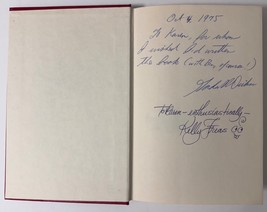 Oct 4 1975
To Karen, for whom
I wished I'd written
this book (with
Gordon R. Dickson
To Karen - enthusiastically -
Kelly Freas